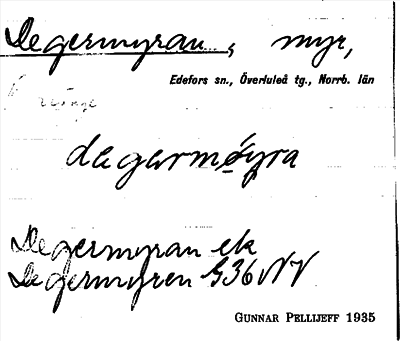 Degermyran, myr,
Edefors sn., Överluleå tg., Norrb. län
degermøyra
Degermyran ek
Degermyren G36NV
GUNNAR PELLIJEFF 1935